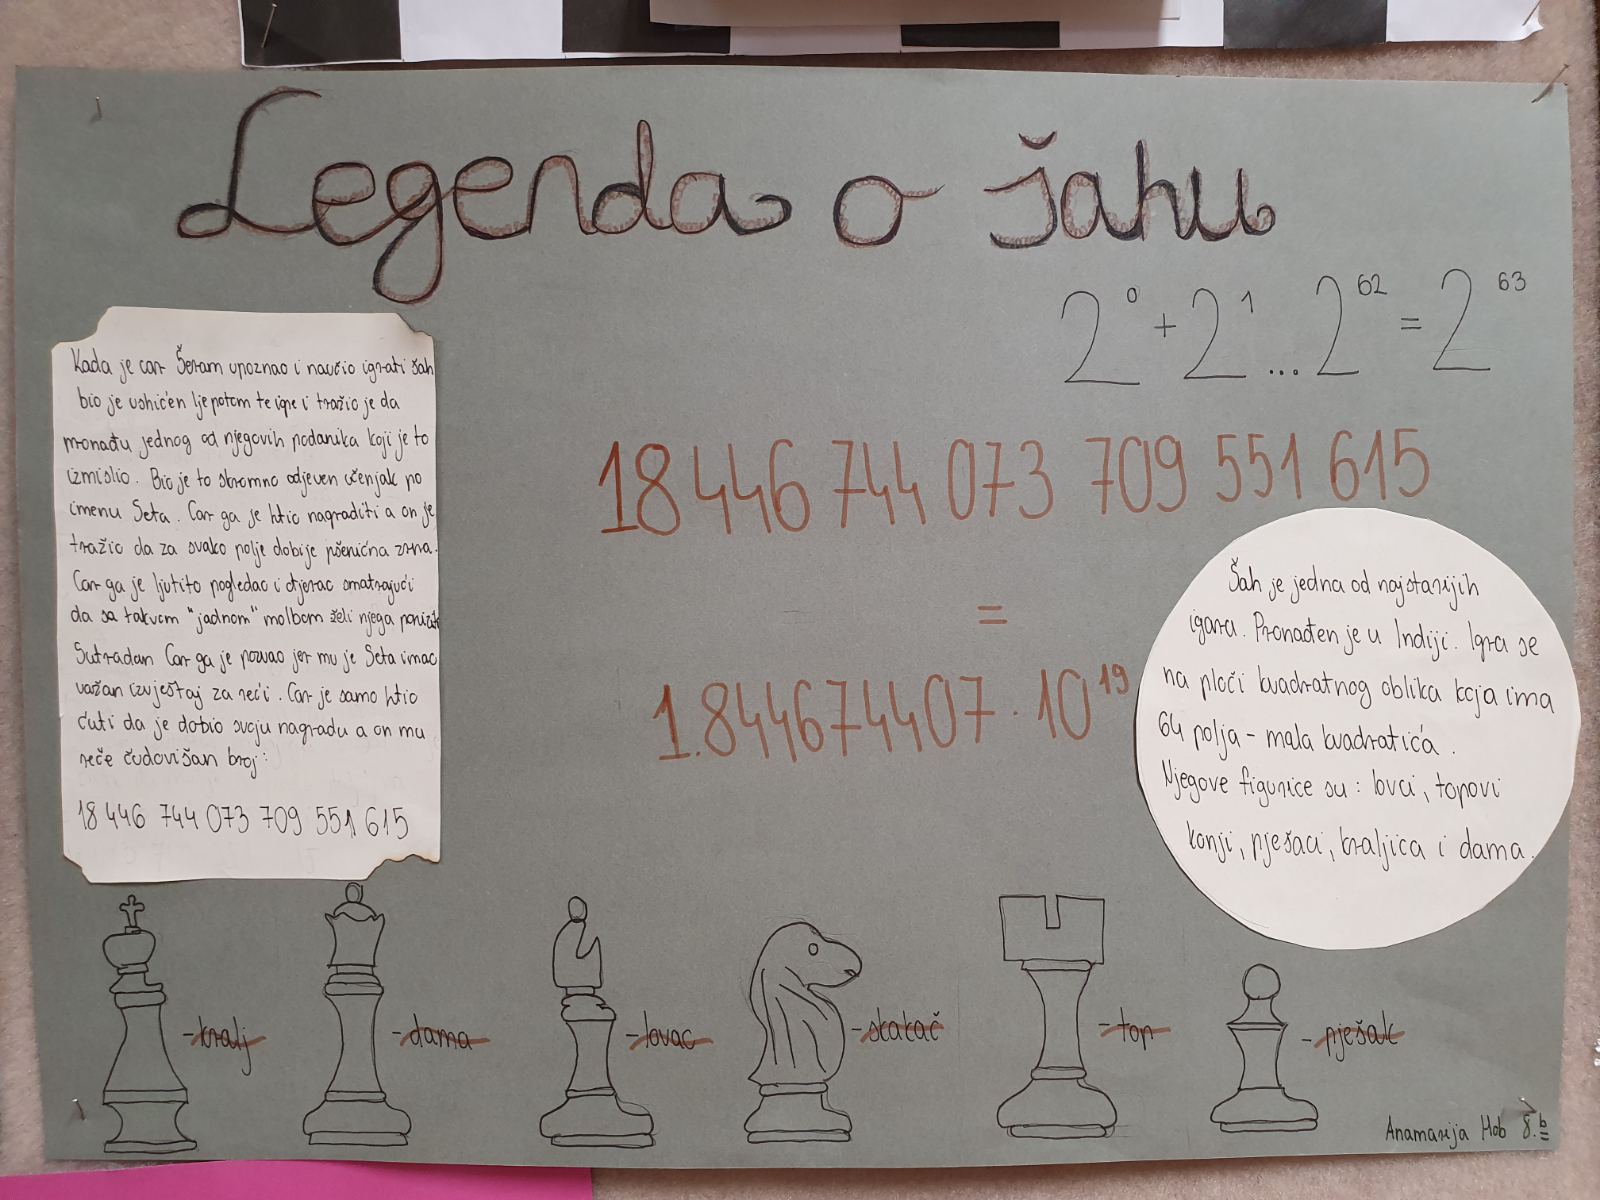 Legenda o šahu
2⁰ + 2¹ ... 2⁶² = 2⁶³
Kada je car Šeram upoznao i naučio igrati šah
bio je ushićen ljepotom te igre i tražio je da
pronađu jednog od njegovih podanika koji je to
izmislio. Bio je to skromno odjeven učenjak po
imenu Seta. Car ga je htio nagraditi a on je
tražio da za svako polje dobije pšenična zrna.
Car ga je ljutito pogledao i otjerao smatrajući
da sa takvom "jadnom" molbom želi njega
Sutradan Car ga je pozvao jer mu je Seta imao
važan izvještaj za reći. Car je samo htio
čuti da je dobio svoju nagradu a on mu
reče čudovišan broj:
18 446 744 073 709 551 615
18 446 744 073 709 551 615
=
1.844674407 · 10¹⁹
Šah je jedna od najstarijih
igara. Pronađen je u Indiji. Igra se
na ploči kvadratnog oblika koja ima
64 polja - mala kvadratića.
Njegove figurice su: lovci, topovi
konji, pješaci, kraljica i dama.
-kralj
-dama
-lovac
-skakač
-top
-pješak
Anamarija Hob 8.b